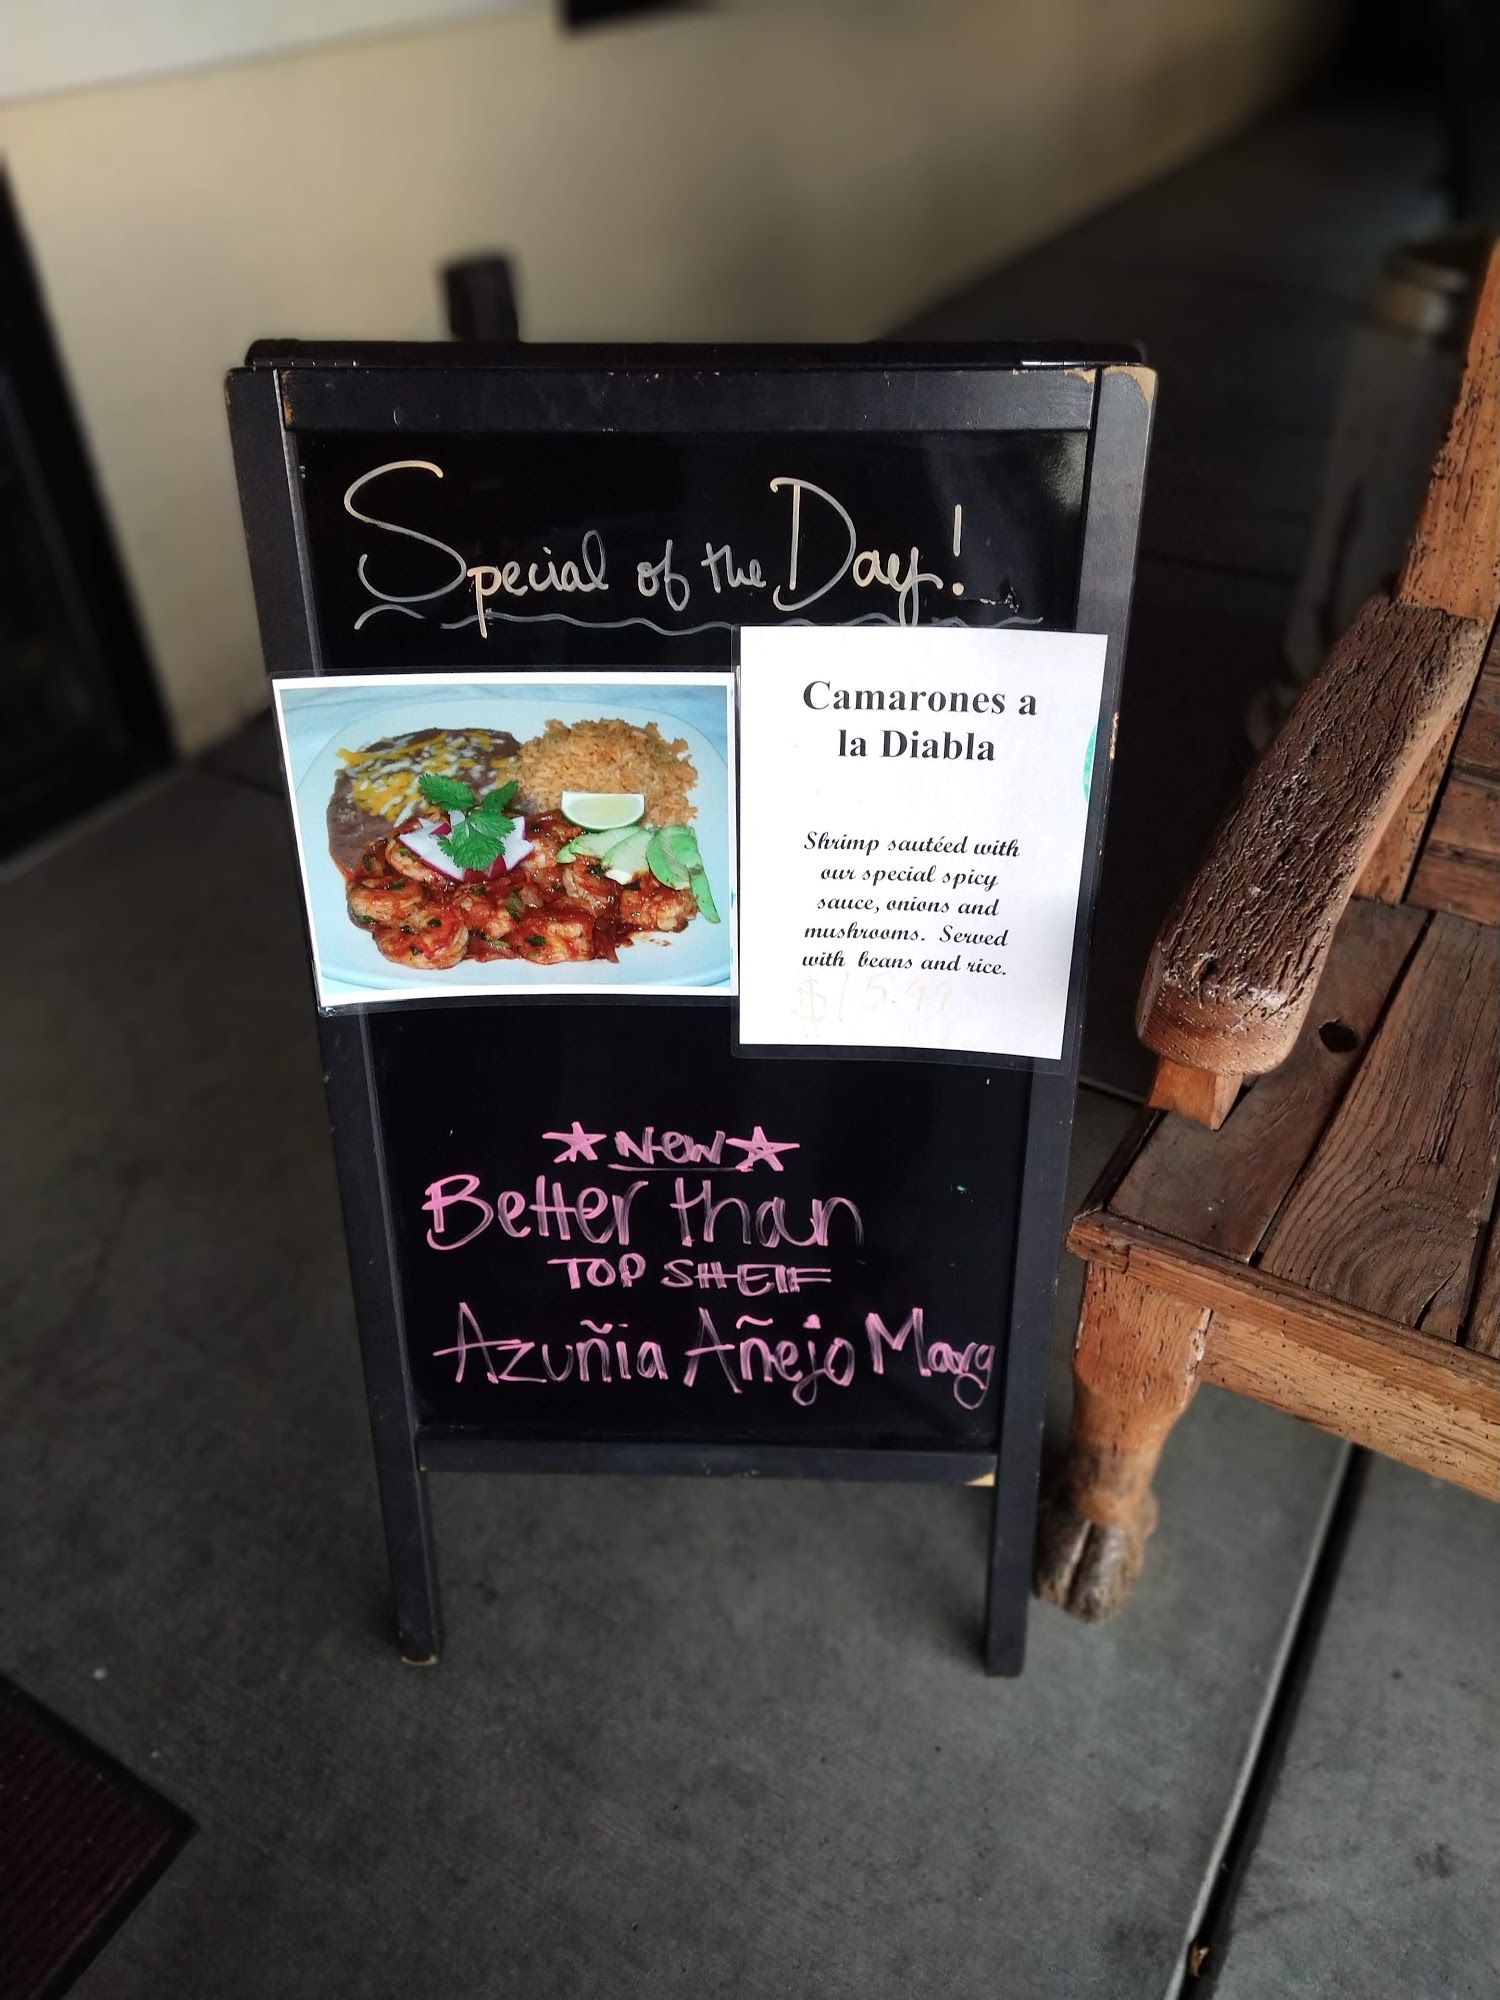 Special of the Day!
Camarones a
la Diabla
Shrimp sautéed with
our special spicy
sauce, onions and
mushrooms. Served
with beans and rice.
$15.99
NEW
Better than
TOP SHELF
Azuñia Añejo Marg